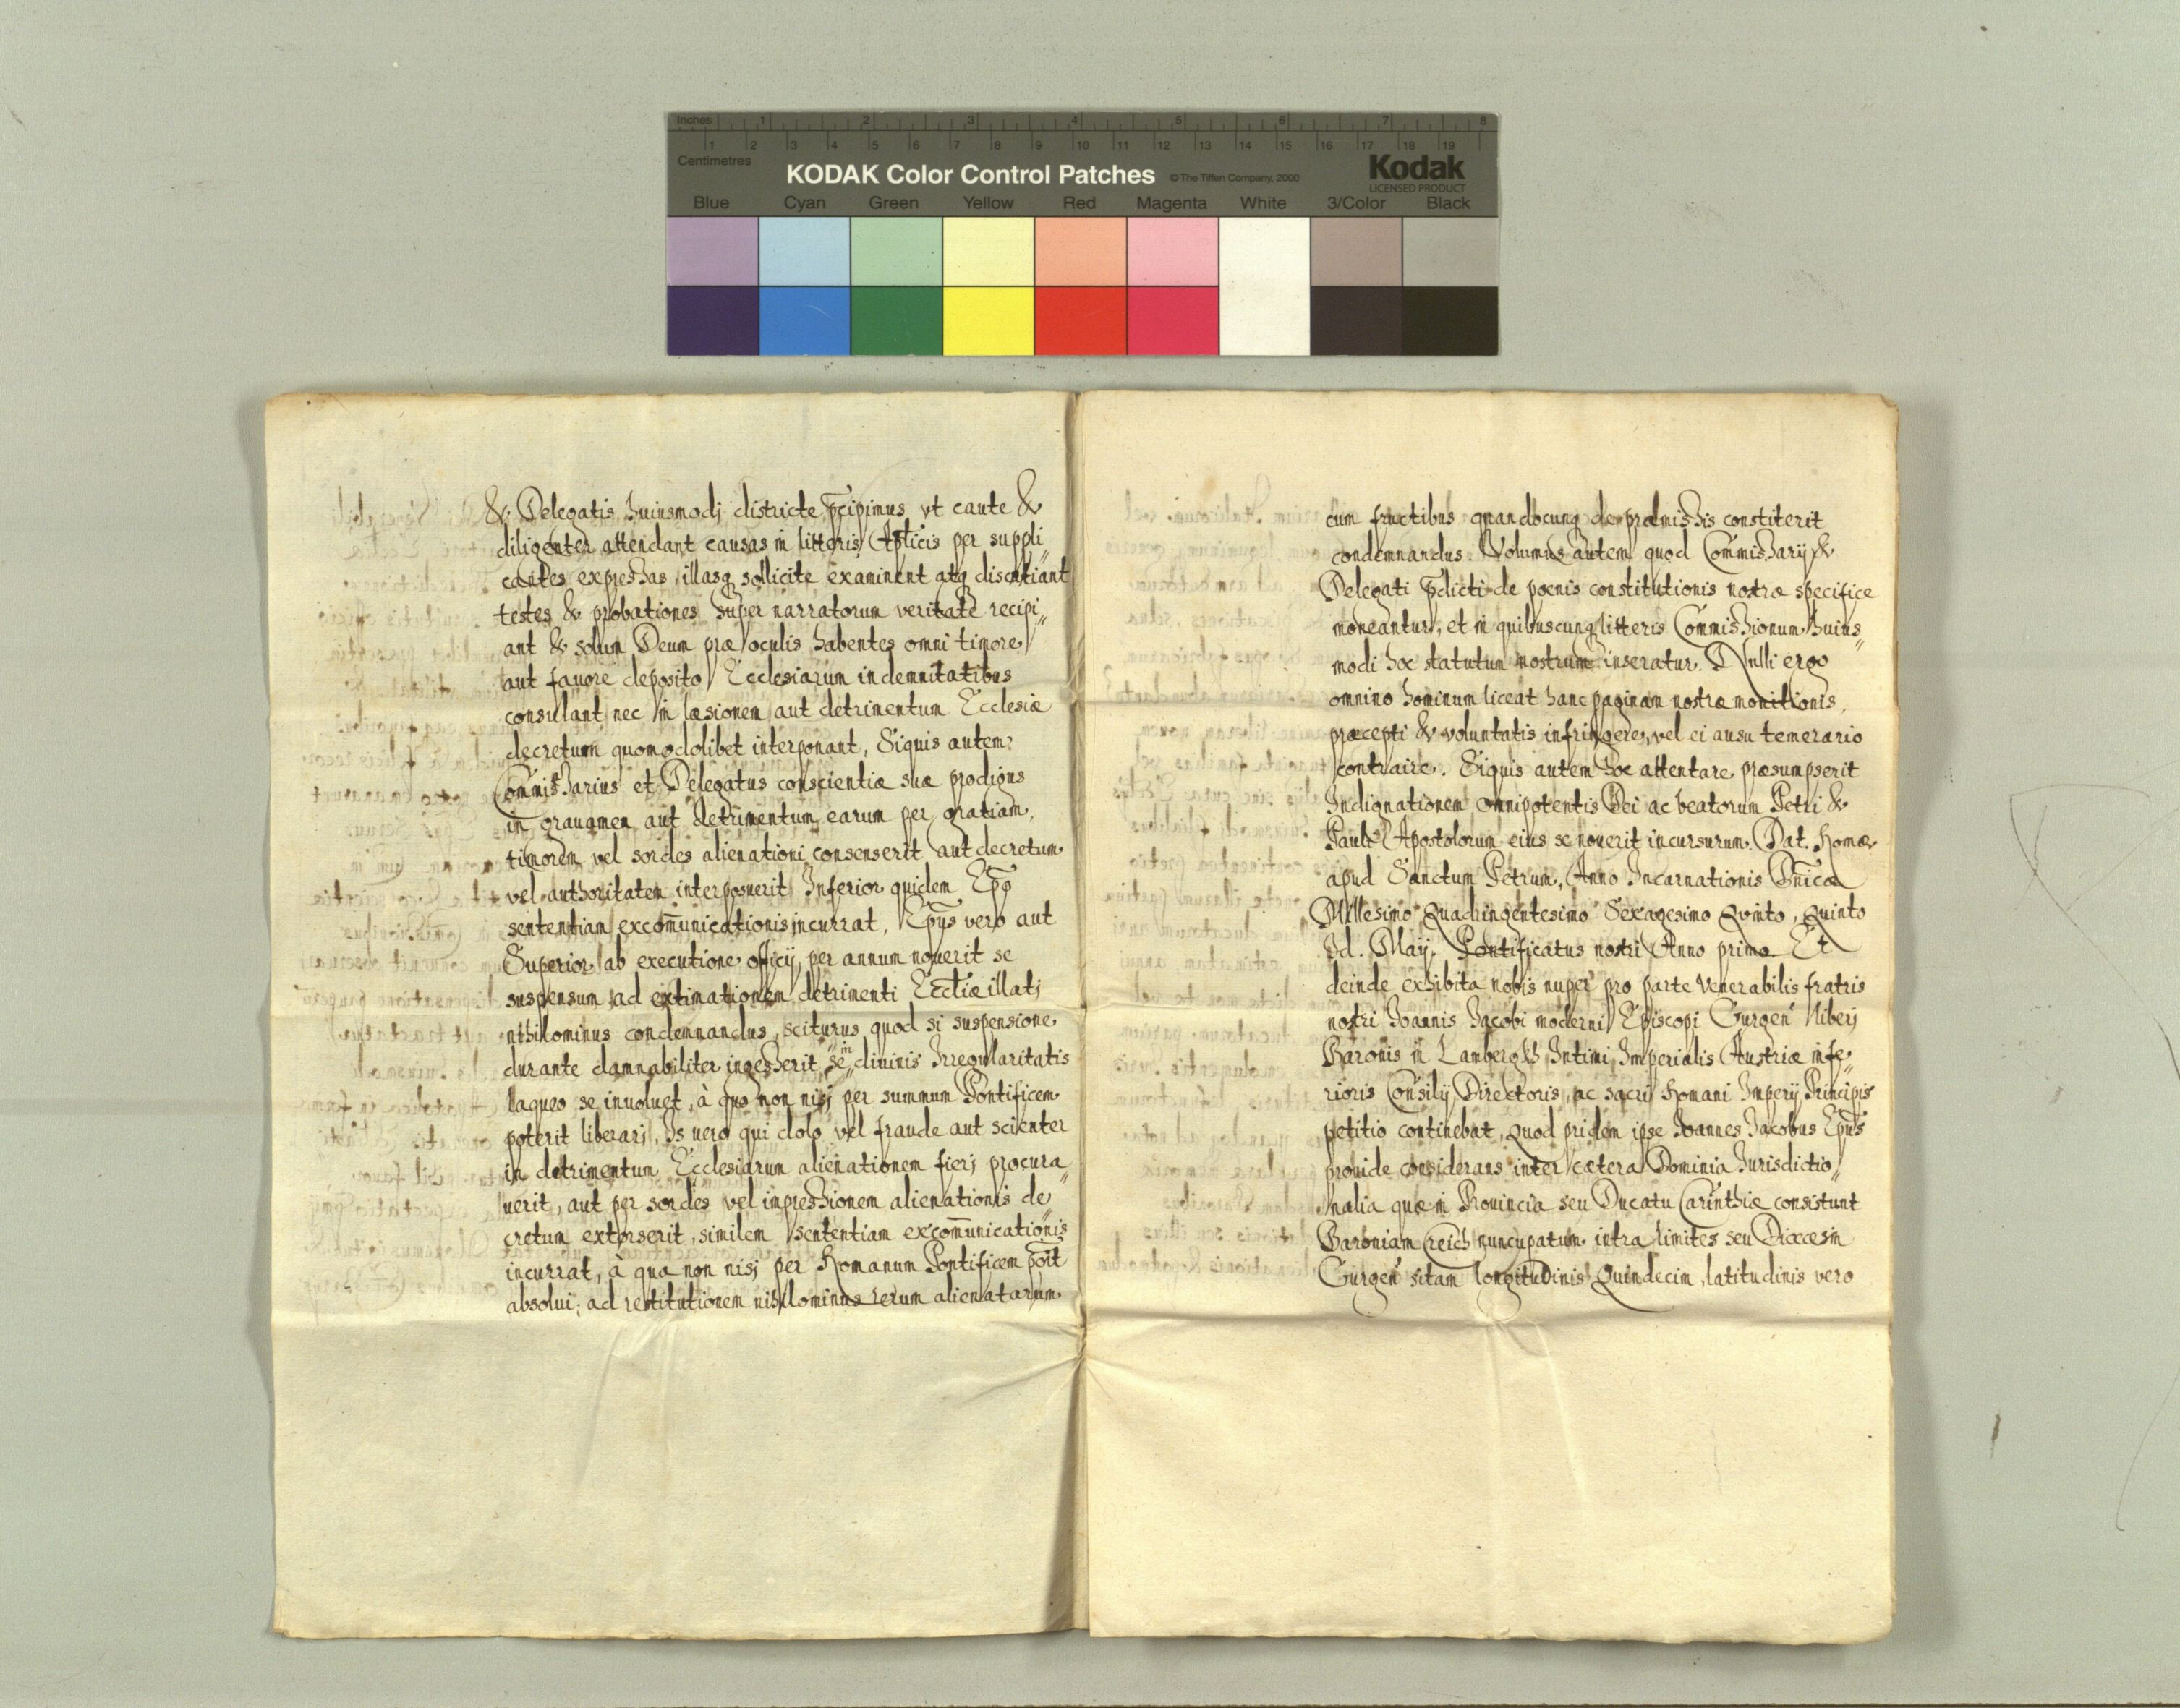 Inches 1 2 3 4 5 6 7 8
1 2 3 4 5 6 7 8 9 10 11 12 13 14 15 16 17 18 19
Centimetres
KODAK Color Control Patches © The Tiffen Company, 2000 Kodak
LICENSED PRODUCT
Blue Cyan Green Yellow Red Magenta White 3/Color Black
& Delegatis huiusmodj districte p̄cipimus vt caute &
diligenter attendant causas in litteris Aplicis per suppli„
cantes expressas, illasq sollicite examinent atq discutiant
testes & probationes super narratorum veritate recipi„
ant & solum Deum præ oculis habentes omni timore
aut fauore deposito Ecclesiarum indemnitatibus
consulant nec in læsionem aut detrimentum Ecclesiæ
decretum quomodolibet interponant, Siquis autem
Commissarius et Delegatus conscientiæ suæ prodigus
in grauamen aut detrimentum earum per gratiam,
timorem vel sordes alienationi consenserit aut decretum
vel authoritatem interposuerit Inferior quidem Ep̄o
sententiam excom̄unicationis incurrat, Ep̄us vero aut
Superior ab executione officij per annum nouerit se
suspensum ad extimationem detrimenti Ecctiæ illatj
nihilominus condemnandus, sciturus quod si suspensione
durante damnabiliter ingesserit se in diuinis Irregularitatis
laqueo se inuoluet, à quo non nisj per summum Pontificem
poterit liberarj, Is uero qui dolo vel fraude aut scienter
in detrimentum Ecclesiarum alienationem fierj procura„
uerit, aut per sordes vel inpressionem alienationis de„
cretum extorserit, similem sententiam excom̄unicationis
incurrat, à qua non nisj per Romanum Pontificem po̅it
absolui; ad restitutionem nihilominus rerum alienatarum
cum fructibus quandocunq de præmissis constiterit
condemnandus. Volumus autem quod Commissarij &
Delegati p̄dicti de poenis constitutionis nostræ specifice
moneantur, et in quibuscunq litteris Commissionum huius„
modi hoc statutum nostrum inseratur. Nulli ergo
omnino hominum liceat hanc paginam nostræ monitionis,
præcepti & voluntatis infringere, vel ei ausu temerario
contraire. Siquis autem hoc attentare præsumpserit
Indignationem omnipotentis Dei ac beatorum Petri &
Pauli Apostolorum eius se nouerit incursurum. Dat. Romæ
apud Sanctum Petrum, Anno Incarnationis Dn̄icæ
Millesimo Quadringentesimo Sexagesimo Qvinto, Quinto
Id. Maij. Pontificatus nostri Anno primo Et
deinde exhibita nobis nuper pro parte Venerabilis fratris
nostri Joannis Jacobi moderni Episcopi Gurgen̄ liberj
Baronis in Lambergkh Intimi Imperialis Austriæ infe„
rioris Consilij Directoris, ac sacri Romani Imperij Principis
petitio continebat, quod pridem ipse Joannes Jacobus Ep̄us
prouide considerans inter cætera Dominia Jurisdictio„
nalia quæ in Prouincia seu Ducatu Carinthiæ consistunt
Baroniam Creich nuncupatum intra limites seu Dioecesin
Gurgen̄ sitam longitudinis Quindecim, latitudinis vero